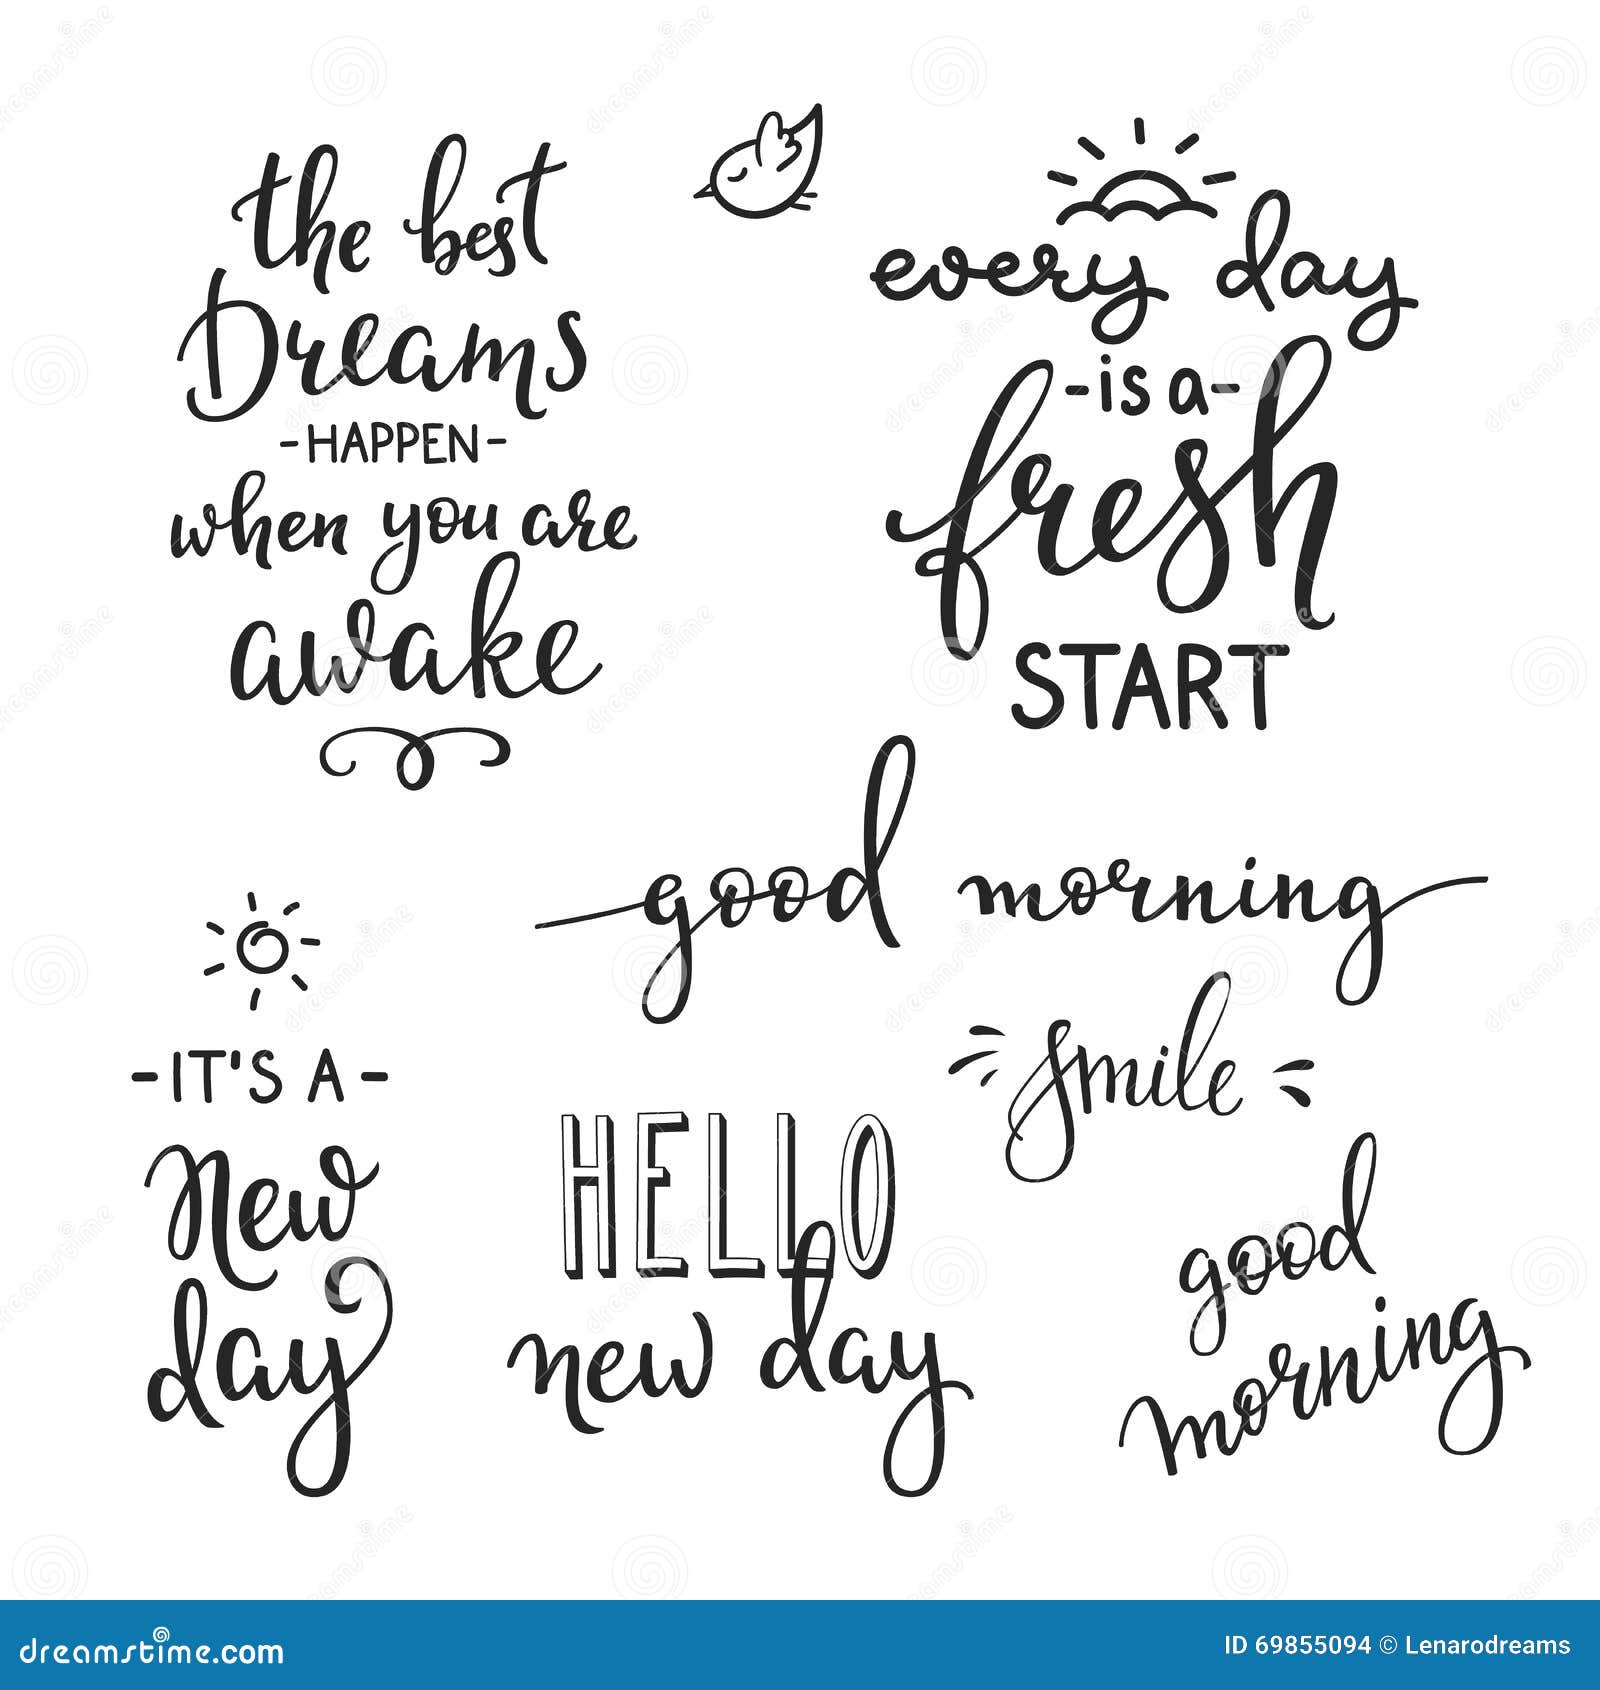 the best
Dreams
-HAPPEN-
when you are
awake
every day
-is a-
fresh
START
good morning
smile
-IT'S A-
New
day
HELLO
new day
good
morning
dreamstime.com
ID 69855094 © Lenarodreams